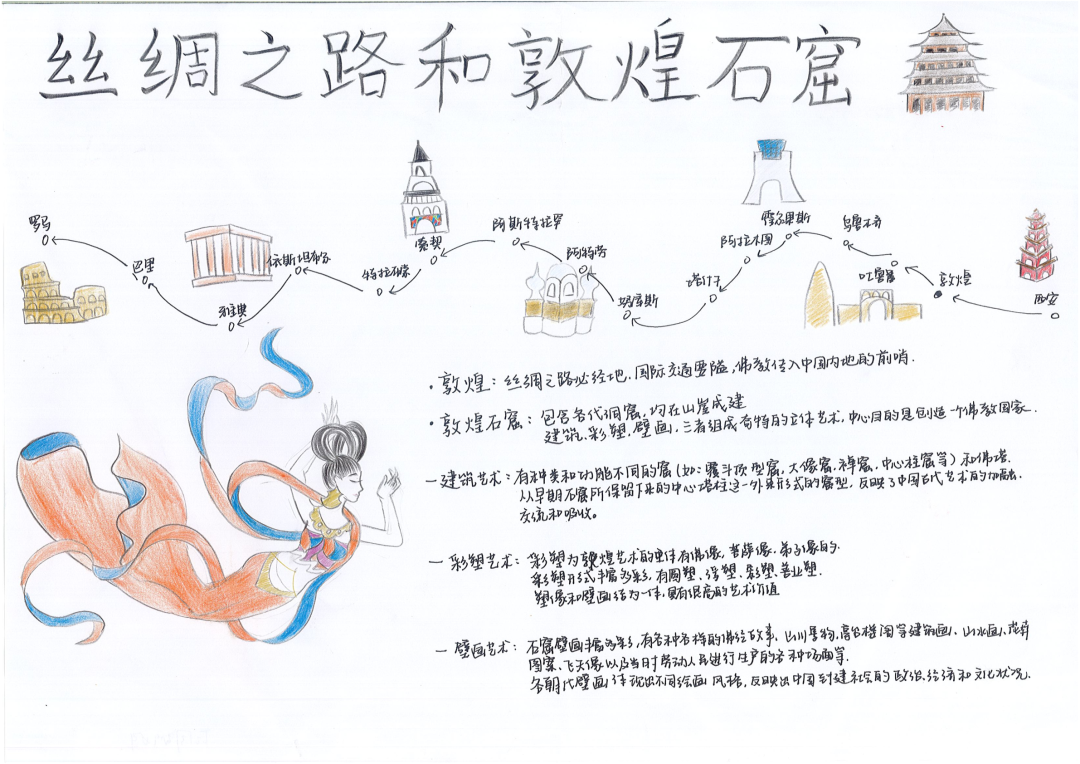 丝绸之路和敦煌石窟
罗马
巴里
雅典
依斯坦布尔
特拉布宗
索契
阿斯特拉罕
阿特劳
玛库斯
塔什干
阿拉木图
霍尔果斯
乌鲁木齐
吐鲁番
敦煌
西安
·敦煌：丝绸之路必经地、国际交通要隘，佛教传入中国内地的前哨．
·敦煌石窟：包含各代洞窟，均在山崖成建
建筑、彩塑，壁画，三者组成奇特的立体艺术，中心目的是创造一个佛教国家．
一建筑艺术：有种类和功能不同的窟(如：覆斗顶型窟，大像窟，禅窟，中心柱窟等)和佛塔．
从早期石窟所保留下来的中心塔柱这一外来形式的窟型，反映了中国古代艺术的加融、
交流和吸收。
一 彩塑艺术：彩塑为敦煌艺术的主体有佛像，菩萨像、弟子像的．
彩塑形式丰富多彩，有圆塑、浮塑、影塑、善业塑．
塑像和壁画结为一体，具有很高的艺术价值
一 壁画艺术：石窟壁画丰富多彩，有各种各样的佛经故事，山川景物，亭台楼阁等建筑画、山水画、花卉
图案、飞天像以及当时劳动人民进行生产的各种场面等．
各朝代壁画体现出不同绘画风格，反映出中国封建社会的政治、经济和文化状况．